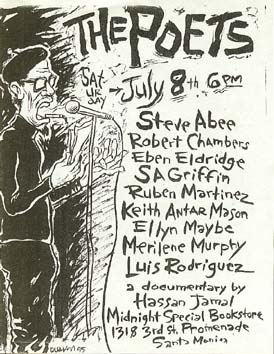 THE POETS
SAT
UR
DAY
→ July 8th 6PM
Steve Abee
Robert Chambers
Eben Eldridge
SA Griffin
Ruben Martinez
Keith Antar Mason
Ellyn Maybe
Merilene Murphy
Luis Rodriguez
a documentary by
Hassan Jamal
Midnight Special Bookstore
1318 3rd St. Promenade
Santa Monica